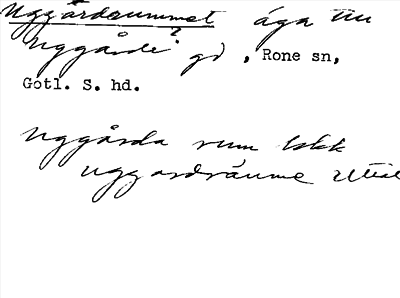 Uggårdsrummet äga till
Uggårde? gd, Rone sn,
Gotl. S. hd.
Uggårda rum
uggardräume